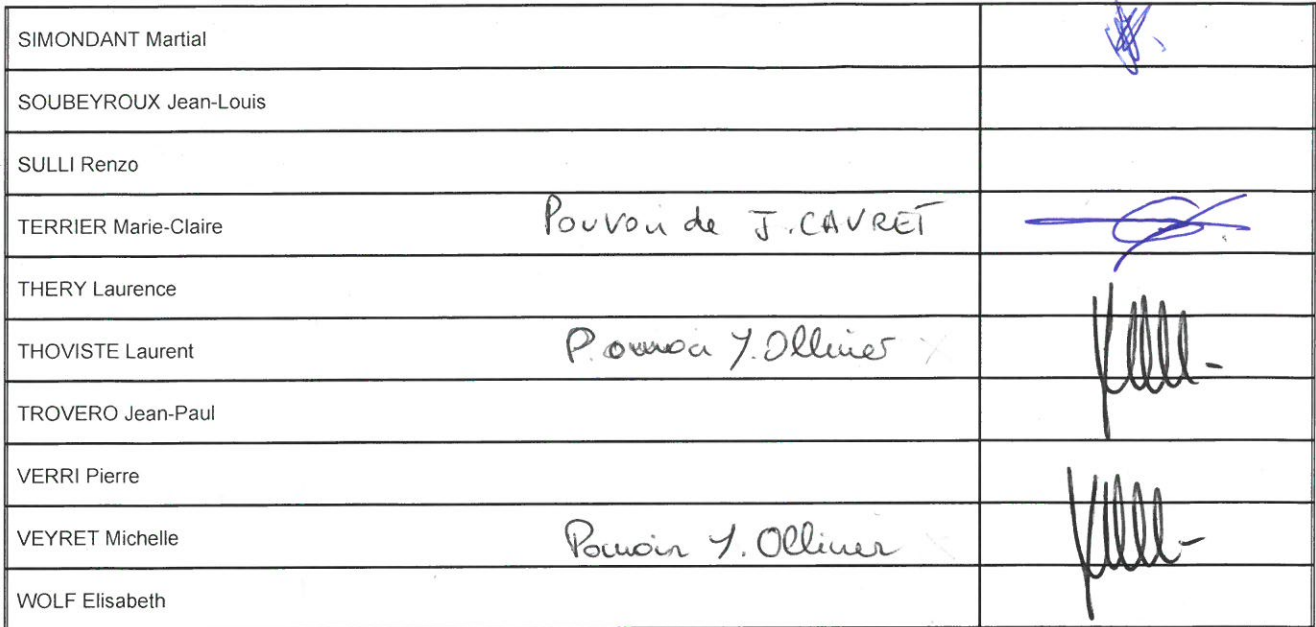 SIMONDANT Martial
SOUBEYROUX Jean-Louis
SULLI Renzo
TERRIER Marie-Claire Pouvoir de J. CAVRET
THERY Laurence
THOVISTE Laurent Pouvoir Y. Ollivier
TROVERO Jean-Paul
VERRI Pierre
VEYRET Michelle Pouvoir Y. Ollivier
WOLF Elisabeth